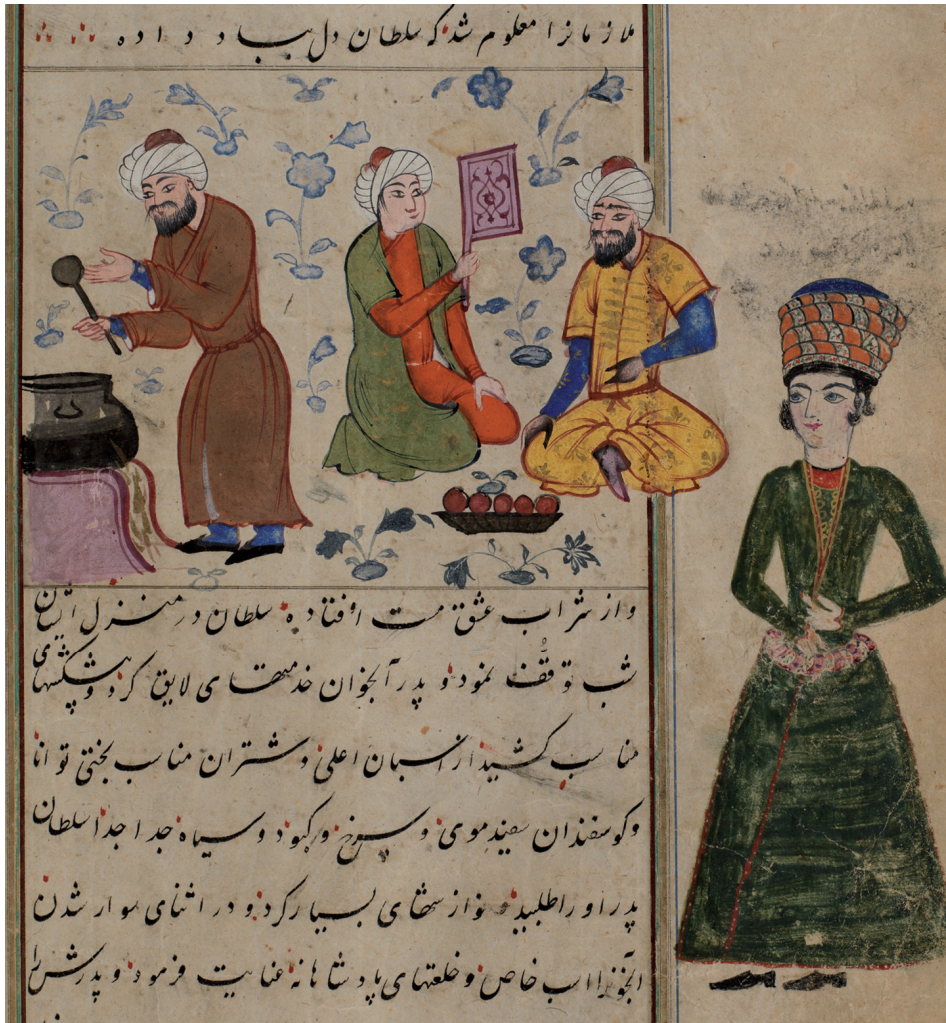 ملازمانرا معلوم شد که سلطان دل بباد داده
و از شراب عشق مست افتاده سلطان در منزل ایشان
شب توقّف نمود و پدر آنجوان خدمتهای لایق کرد و پیشکشهای
مناسب کشید از اسبان اعلی و شتران مناسب بختی توانا
و کوسفندان سفیدموی و سرخ و کبود و سیاه جدا جدا سلطان
پدر او را طلبید نوازشهای بسیار کرد و در اثنای سوار شدن
آنجوانرا اسب خاص و خلعتهای پادشاهانه عنایت فرمود و پدرش را